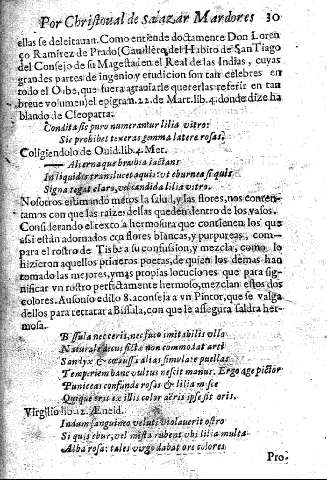 Por Christoual de Salazar Mardones 30
ellas se deleitauan. Como entiende doctamente Don Loren
ço Ramirez de Prado (Cauallero del Habito de SanTiago
del Consejo de su Magestad en el Real de las Indias, cuyas
grandes partes de ingenio y erudicion son tan celebres en
todo el Orbe, que fuera agrauiarle quererlas referir en tan
breue volumen) el epigran. 22. de Mart. lib. 4. donde dize ha
blando de Cleopatra:
Condita sic puro numerantur lilia vitro:
Sic prohibet tenues gemma latere rosas.
Coligiendolo de Ouid. lib. 4. Met.
Alternaque brachia iactans
In liquidis translucet aquis: vt eburnea si quis
Signa tegat claro, vel candida lilia vitro.
Nosotros estimando menos la salud, y las flores, nos conten-
tamos con que las raizes dellas queden dentro de los vasos.
Considerando el texto la hermosura que contienen los que
assi estàn adornados con flores blancas, y purpureas, com-
para el rostro de Tisbe a su confusion, y mezcla, como lo
hizieron aquellos primeros poetas, de quien los demas han
tomado las mejores, y mas propias locuciones que para sig-
nificar vn rostro perfectamente hermoso, mezclan estos dos
colores. Ausonio edilio 8. aconseja a vn Pintor, que se valga
dellos para retratar a Bissula, con que le assegura saldra her-
mosa.
Bissula nec ceris, nec fuco imitabilis vllo
Naturale decus fictæ non commodat arti
Sandyx & cerussa alias simulate puellas
Temperiem hanc vultus nescit manus. Ergo age pictor
Puniceas confunde rosas & lilia misce
Quique erit ex illis color aëris ipse sit oris.
Virgilio lib. 12. Æneid.
Indum sanguineo veluti violauerit ostro
Si quis ebur, vel mista rubent vbi lilia multa
Alba rosa: tales virgo dabat ore colores
Pro-